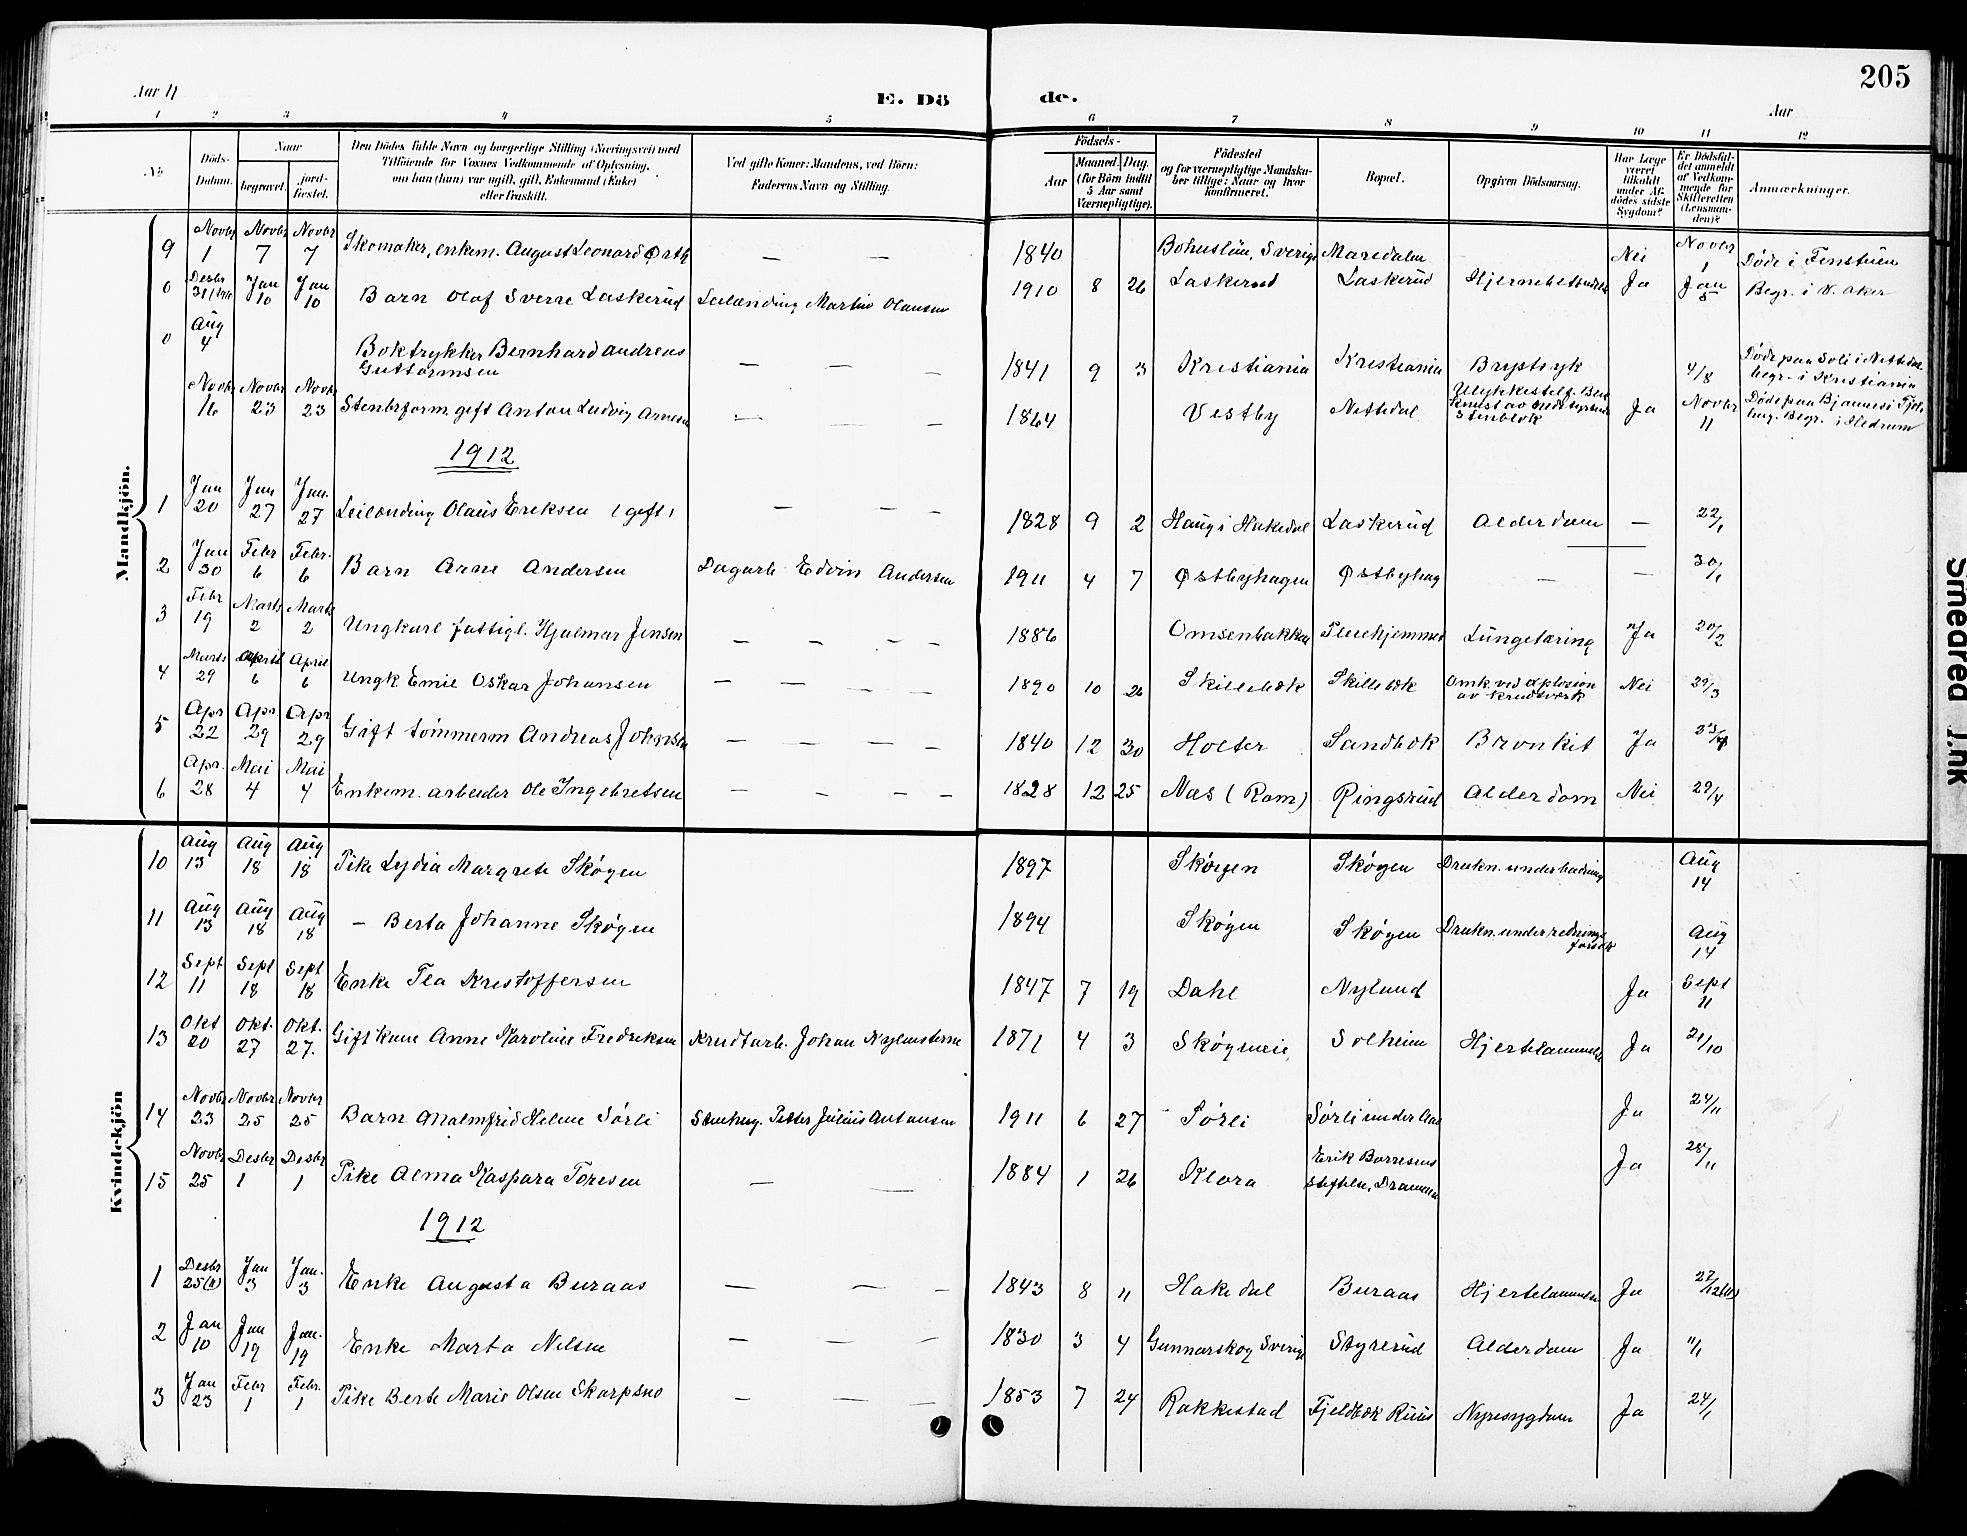 205
Aar 11
E. Dö
de.
Aar
1 2 3 4 5 6 7 8 9 10 11 12
No
Döds-Datum.
Naar
begravet.
jord-fæstet.
Den Dödes fulde Navn og borgerlige Stilling (Næringsvei) med
Tilföiende for Voxnes Vedkommende af Oplysning,
om han (hun) var ugift, gift, Enkemand (Enke)
eller fraskilt.
Ved gifte Koner: Mandens, ved Börn:
Faderens Navn og Stilling.
Födsels-
Aar
Maaned. Dag.
(for Börn indtil
5 Aar samt
Værnepligtige).
Födested
og for værnepligtige Mandska-
ber tillige: Naar og hvor
konfirmeret.
Bopæl.
Opgiven Dödsaarsag.
Har Læge
været
tilkaldt
under Af-
dödes sidste
Sygdom?
Er Dödsfal-
det anmeldt
af Vedkom-
mende for
Skifteretten
(Lensman-
den)?
Anmærkninger.
Mandkjön.
9 Novbr 1 Novbr 7 Novbr 7 Skomaker, enkem. August Leonard Örth — — 1840 Bohuslän, Sverige Maredalen Nei Novbr 1 Döde i Finstuen
0 Desbr 31 Jan 10 Jan 10 Barn Olaf Sverre Laskerud Leilænding Martin Olausen 1910 8 26 Laskerud Laskerud Ja Jan 5 Begr. i V. Aker
0 Aug 4 Boktrykker Bernhard Andreas Guttormsen — — — 1841 9 3 Kristiania Kristiania Brystsyk 4/8 Döde paa Soli i Nittedal begr. i Kristiania
Novbr 16 Novbr 23 Novbr 23 gift Anton Ludvig — — — 1864 Vestby Nittedal Ulykkestilf. Ja Novbr 11 Döde paa
1912
1 Jan 20 Jan 27 Jan. 27 Leilænding Olaus Eriksen (gift) — — — 1828 9 2 Haug i Hakedal Laskerud Alderdom — 22/1
2 Jan 30 Febr 6 Febr. 6 Barn Arne Andersen Dagarb Edvin Andersen 1911 4 7 Østbyhagen Østbyhag — — 30/1
3 Febr 19 Marts 2 Marts 2 Ungkarl fattigl. Hjalmar Jensen — — — — 1886 Omsenbakken Pleiehjemmet Lungetæring Ja 20/2
4 Marts 29 April 6 April 6 Ungk Emil Oskar Johansen — — — — 1890 10 26 Skillebæk Skillebæk Omk. ved explosion av krudtverk Nei 29/3
5 Apr 22 Apr 29 Apr 29 Gift tömmerm Andreas Johnsen — — — — 1840 12 30 Holter Sandbæk Bronkit Ja 23/4
6 Apr. 28 Mai 4 Mai 4 Enkem. arbeider Ole Ingebretsen — — — — 1828 12 25 Næs (Rom) Ringsrud Alderdom Nei 29/4
Kvindekjön
10 Aug 13 Aug 18 Aug 18 Pike Lydia Margrete Skøyen 1897 Skøyen Skøyen Drukn. under badning Aug 14
11 Aug 13 Aug 18 Aug 18 — Berta Johanne Skøyen 1894 Skøyen Skøyen Drukn. under rednings forsøk Aug 14
12 Sept 11 Sept 18 Sept 18 Enke Tea Kristoffersen 1847 7 19 Dahl Nylund Ja Sept 11
13 Okt 20 Okt. 27 Okt. 27. Gift kone Anne Karoline Fredriksen Krudtarb. Johan 1871 4 3 Solheim Hjertelammelse Ja 21/10
14 Novbr 23 Novbr 25 Novbr 25 Barn Malmfrid Helene Sörli Stenhug. Petter Julius Antonsen 1911 6 27 Sörli Sörli under Aas Ja 24/11
15 Novbr 25 Desbr 1 Desbr 1 Pike Alma Kaspara Toresen — — 1884 1 26 Klora Erik Börresens stiftelse, Drammen Ja 28/11
1912
1 Desbr 25(11) Jan 3 Jan. 3 Enke Augusta Buraas — — — 1843 8 11 Hakedal Buraas Hjertelammelse Ja 27/12(11)
2 Jan 10 Jan 19 Jan. 19 Enke Marta Nilsen — — — 1830 3 4 Gunnarskog Sverige Styrerud Alderdom Ja 11/1
3 Jan 23 Febr 1 Febr. 1 Pike Berte Marie Olsen Skarpsno — — — 1853 7 24 Rakkestad Fjeldbæk Ruus Nyresygdom Ja 24/1
Smeared Ink